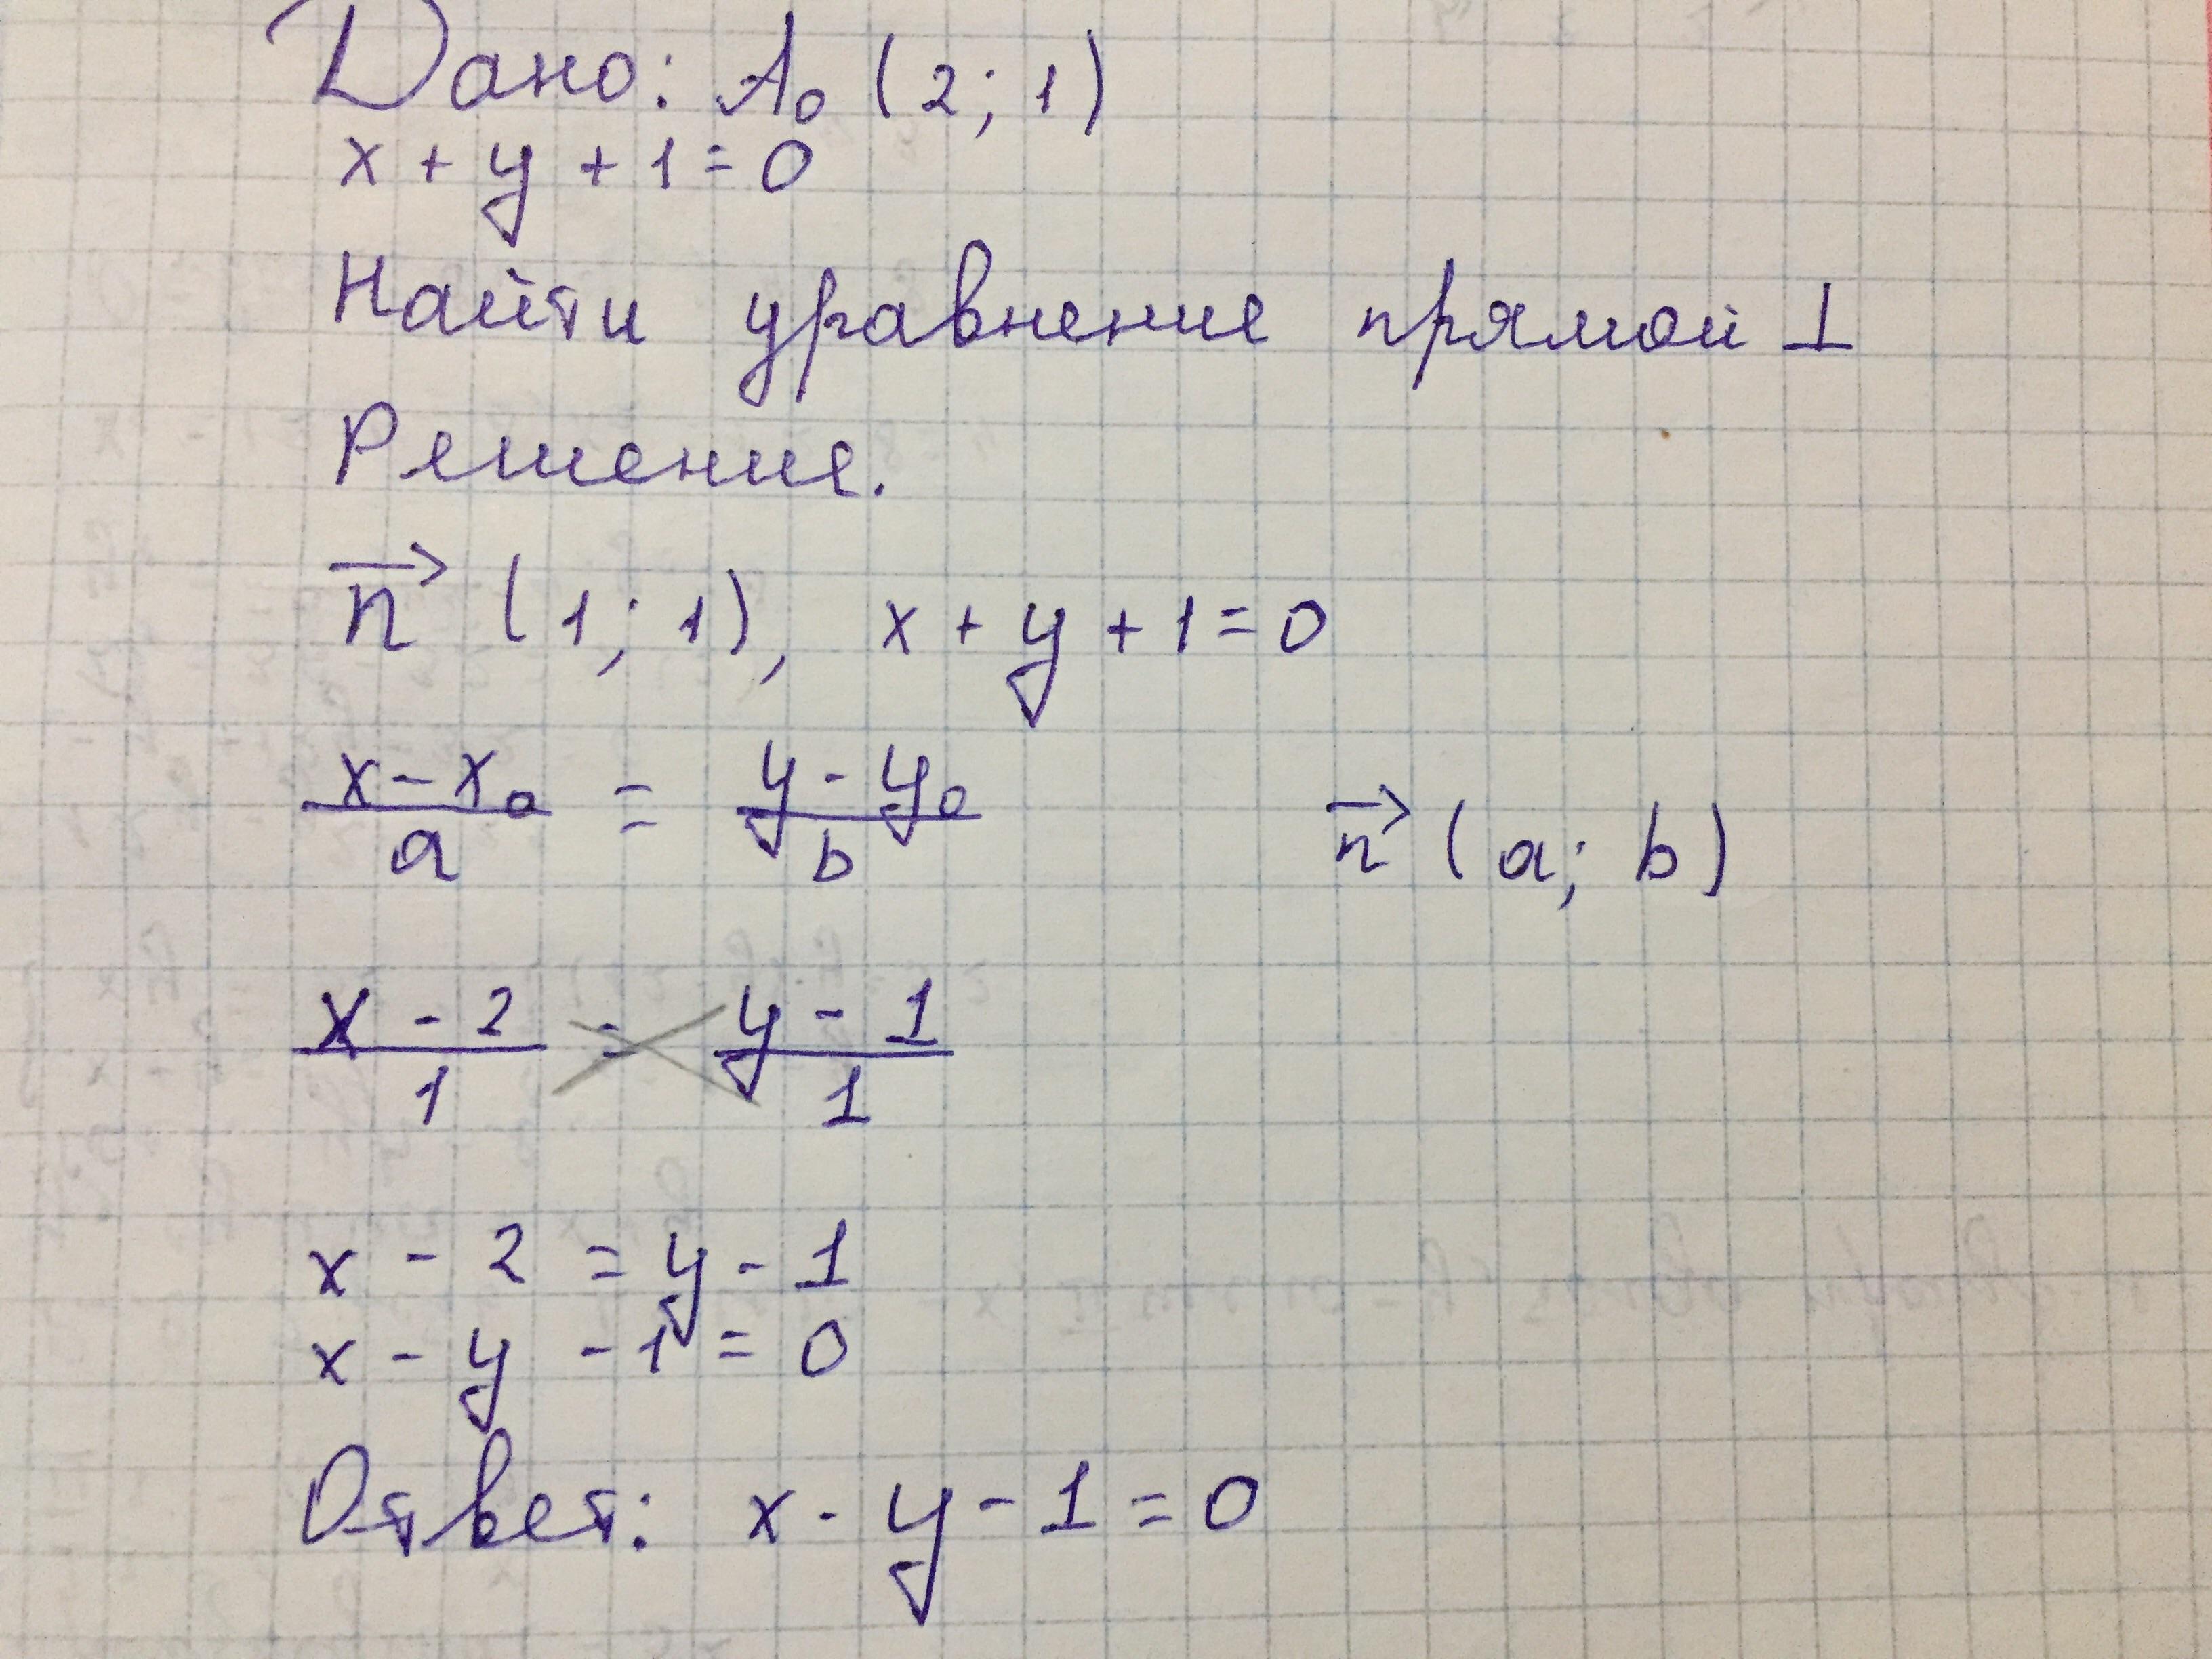 Дано: A₀ (2; 1)
x + y + 1 = 0
Найти уравнение прямой ⊥
Решение.
n⃗ (1; 1), x + y + 1 = 0
(x - x₀)/a = (y - y₀)/b n⃗ (a; b)
(x - 2)/1 = (y - 1)/1
x - 2 = y - 1
x - y - 1 = 0
Ответ: x - y - 1 = 0